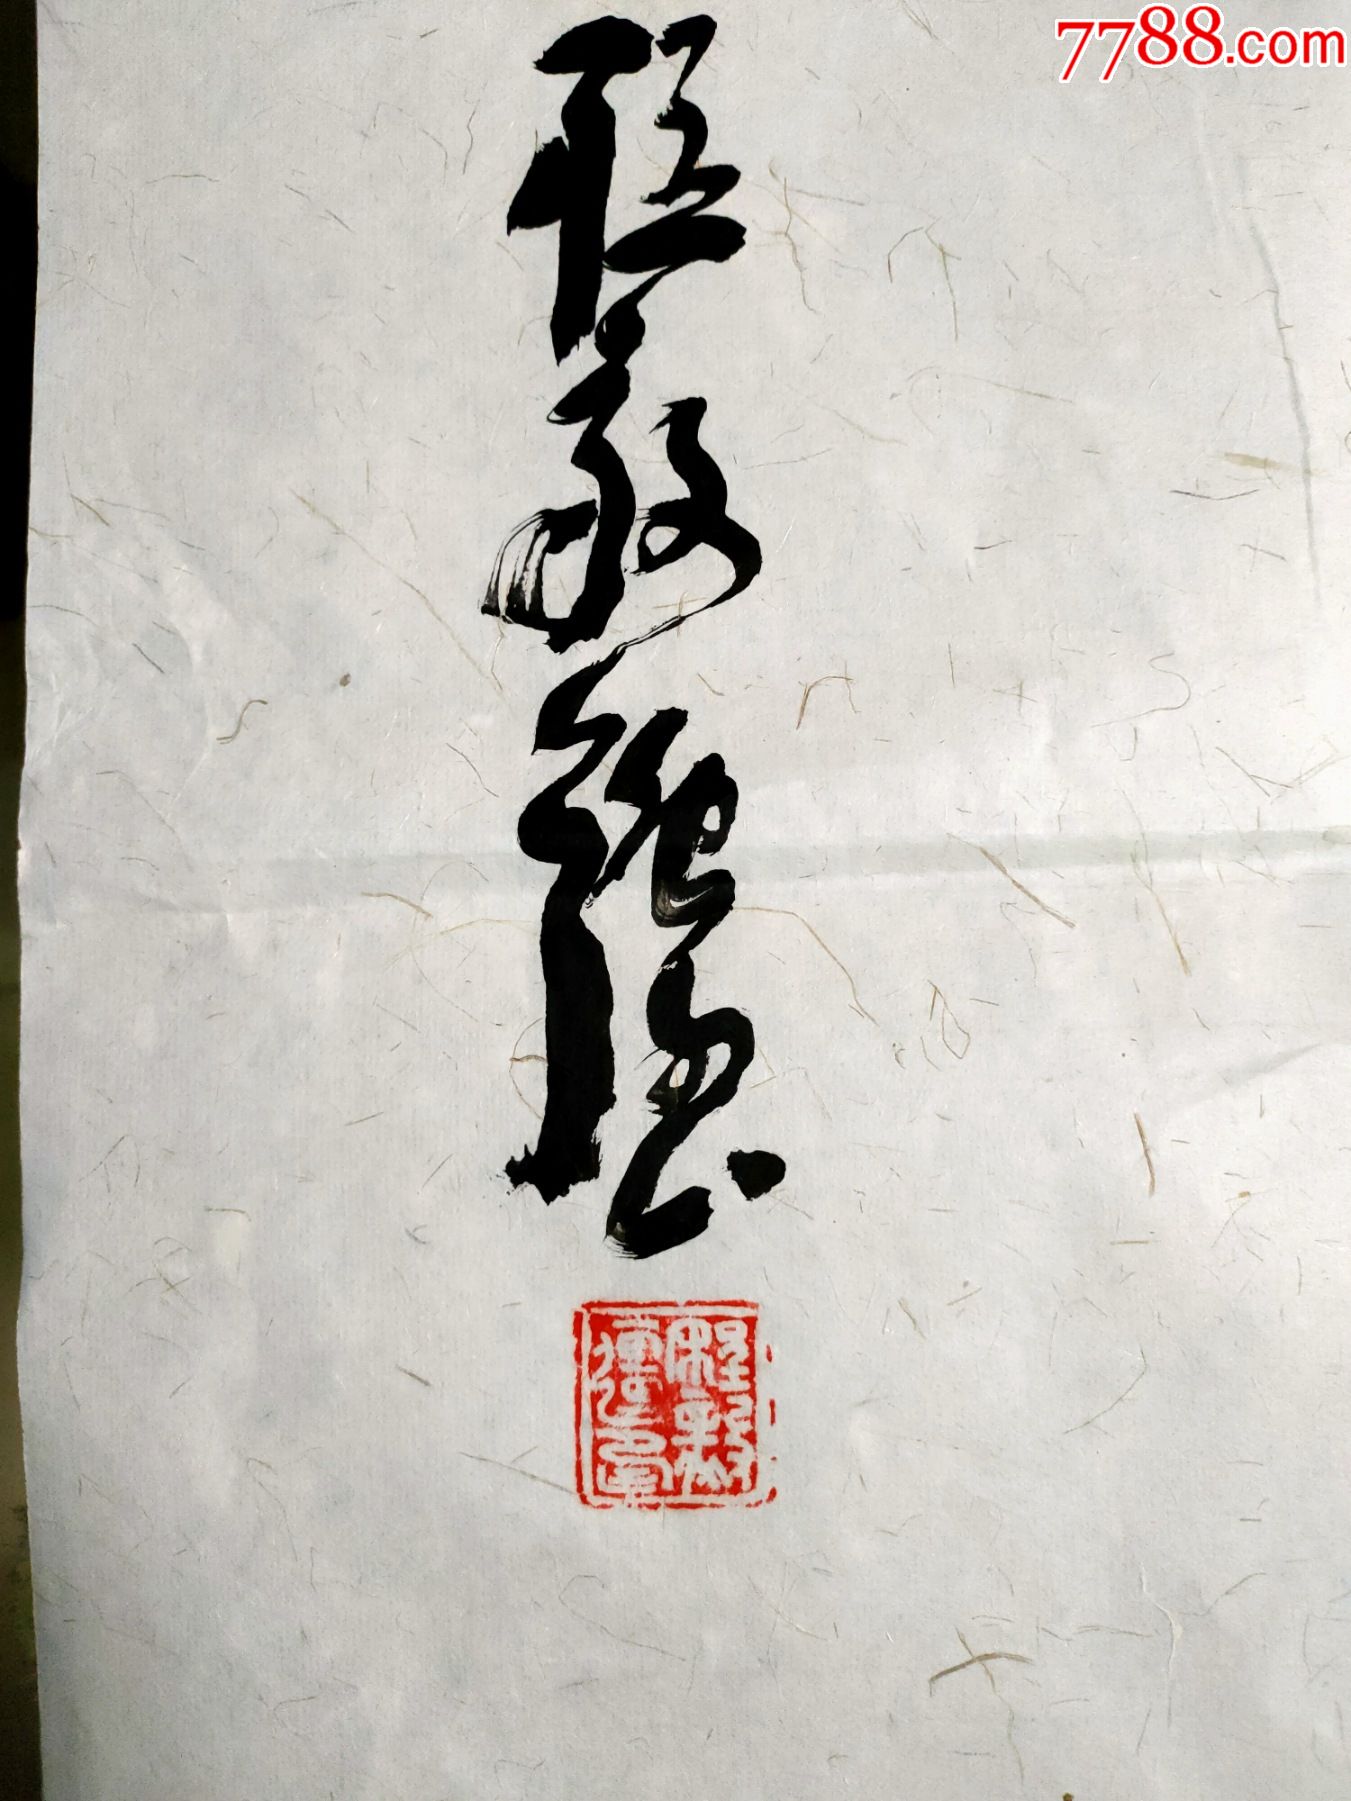 7788.com
程毅强
程毅强印